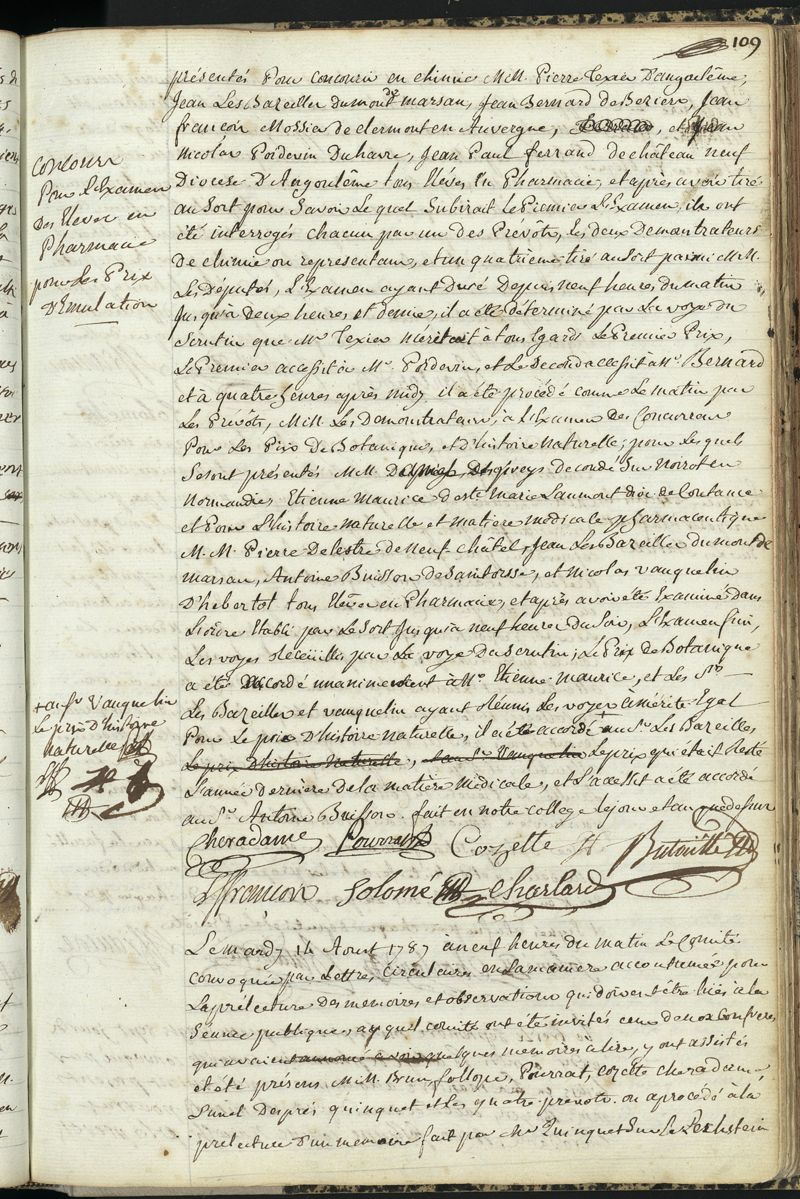 109
présentés Pour concourir en chimie MM. Pierre Texier D'angoulême,
Jean Les Bazeiller du mont de marsan, Jean Bernard de Beziere, Jean
françois Mossier de clermont en Auvergne, et
Nicolas Poidevin Du havre, Jean Paul ferrand de château neuf
Diocese D'Angoulême tous Elèves En Pharmacie, et après avoir tiré
au Sort pour Savoir Le quel Subirait Le Premier L'Examen, ils ont
été interrogés chacun par un des Prevôts, les deux Demonstrateurs
De chimie ou representans, et un quatrieme tiré au Sort parmi MM.
Les Deputés, L'Examen ayant duré Depuis neuf heures du matin
jusqu'à Deux heures et demie, il a été déterminé par La voye du
Scrutin que Mr. Texier méritait à tous Egards Le Premier Prix,
Le Premier accessit à Mr. Poidevin, et Le Second accessit à Mr. Bernard
et à quatre heures après midy il a été procédé comme Le matin par
Les Prévôts, MM. Les Demonstrateurs, à L'Examen Des Concurrens
Pour Les Prix De Botanique, et d'histoire Naturelle; pour Les quels
Se sont présentés MM. de condé Sur Noirot en
Normandie, Etienne Maurice de ste. Marie Laumont dioc. de Coutance
et Pour L'histoire naturelle et matiere médicale pharmaceutique
M.M. Pierre Delestre de Neuf châtel, Jean Les Bazeiller du mont de
marsan, Antoine Buisson de , et Nicolas Vauquelin
D'hebertot tous Elèves en Pharmacie, et après avoir été Examiné dans
L'ordre Etabli par Le Sort jusqu'à neuf heures du Soir, L'Examen fini,
Les voyes recueillies par La voye Du Scrutin, Le Prix de Botanique
a été accordé unanimement à Mr. Etienne Maurice, et Les Srs.
Les Bazeiller et Vauquelin ayant réunis Les voyes à mérite Egal
Pour Le prix D'histoire naturelle, il a été accordé + au Sr. Les Bazeilles
Le prix d'histoire Naturelle, au Sr. Vauquelin Le prix qui était Resté
L'année Derniere de la matiere Médicale, et L'accessit a été accordé
au Sr. Antoine Buisson. fait en notre college le jour et an que dessus
Cheradame Pourrat Cozette Butouillé
françois Solomé Charlard
Le mardy 14 Aoust 1787 à neuf heures du matin Le Comité
convoqué par Lettres circulaires en la maniere accoutumée pour
La prélecture Des mémoires et observations qui doivent être lus à la
Séance publique, auquel comité ont été invités ceux de nos confreres
qui avaient quelques mémoires à lire, y ont assistés
et été présens MM. Brun, follope, Pourrat, Cozette Cheradame,
Lunel Després quinquet et Les quatre prevots. on a procédé à la
prélecture D'un mémoire fait par Mr. Quinquet Sur Le
Concours
Pour L'Examen
Des Elèves en
Pharmacie
pour les Prix
D'Emulation
+ au Sr. Vauquelin
Le prix d'histoire
naturelle